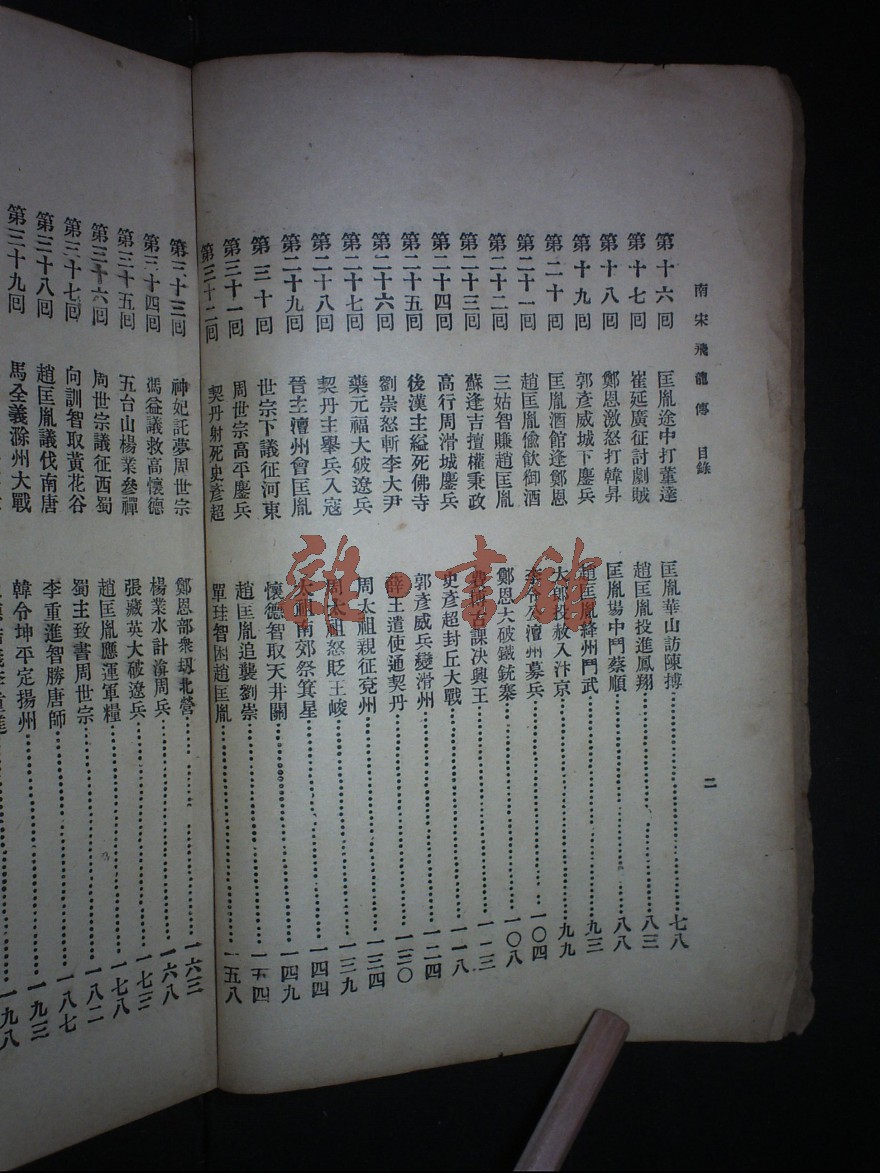 南宋飛龍傳 目錄
二
第十六回 匡胤途中打董達 匡胤華山訪陳摶……七八
第十七回 崔延廣征討劇賊 趙匡胤投進鳳翔……八三
第十八回 鄭恩激怒打韓昇 匡胤場中鬥蔡順……八八
第十九回 郭彥威城下鏖兵 趙匡胤絳州鬥武……九三
第二十回 匡胤酒館逢鄭恩 大郎投赦入汴京……九九
第二十一回 趙匡胤偸飮御酒 澶州募兵……一〇四
第二十二回 三姑智賺趙匡胤 鄭恩大破鐵銃寨……一〇八
第二十三回 蘇逢吉擅權秉政 課决興王……一一三
第二十四回 高行周滑城鏖兵 史彥超封丘大戰……一一八
第二十五回 後漢主縊死佛寺 郭彥威兵變滑州……一二四
第二十六回 劉崇怒斬李大尹 薛王遣使通契丹……一三〇
第二十七回 藥元福大破遼兵 周太祖親征兗州……一三四
第二十八回 契丹主舉兵入寇 周太祖怒貶王峻……一三九
第二十九回 晉主澶州會匡胤 太祖南郊祭箕星……一四四
第三十回 世宗下議征河東 懷德智取天井關……一四九
第三十一回 周世宗高平鏖兵 趙匡胤追襲劉崇……一五四
第三十二回 契丹射死史彥超 單珪智困趙匡胤……一五八
第三十三回 神妃託夢周世宗 鄭恩部衆刼北營……一六三
第三十四回 馮益議救高懷德 楊業水計渰周兵……一六八
第三十五回 五台山楊業參禪 張藏英大破遼兵……一七三
第三十六回 周世宗議征西蜀 趙匡胤應運軍糧……一七八
第三十七回 向訓智取黃花谷 蜀主致書周世宗……一八二
第三十八回 趙匡胤議伐南唐 李重進智勝唐師……一八七
第三十九回 馬全義滁州大戰 韓令坤平定揚州……一九三
一九八